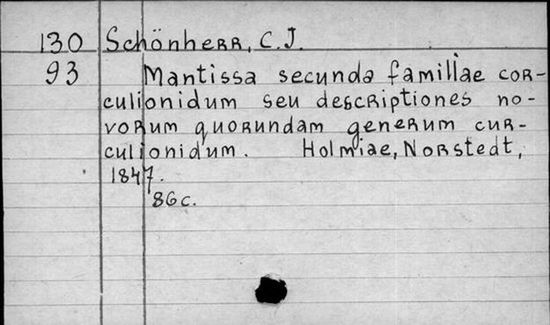 130 Schönherr, C.J.
93 Mantissa secunda familiae cor-
culionidum seu descriptiones no-
vorum quorundam generum cur-
culionidum. Holmiae, Norstedt,
1847.
86c.